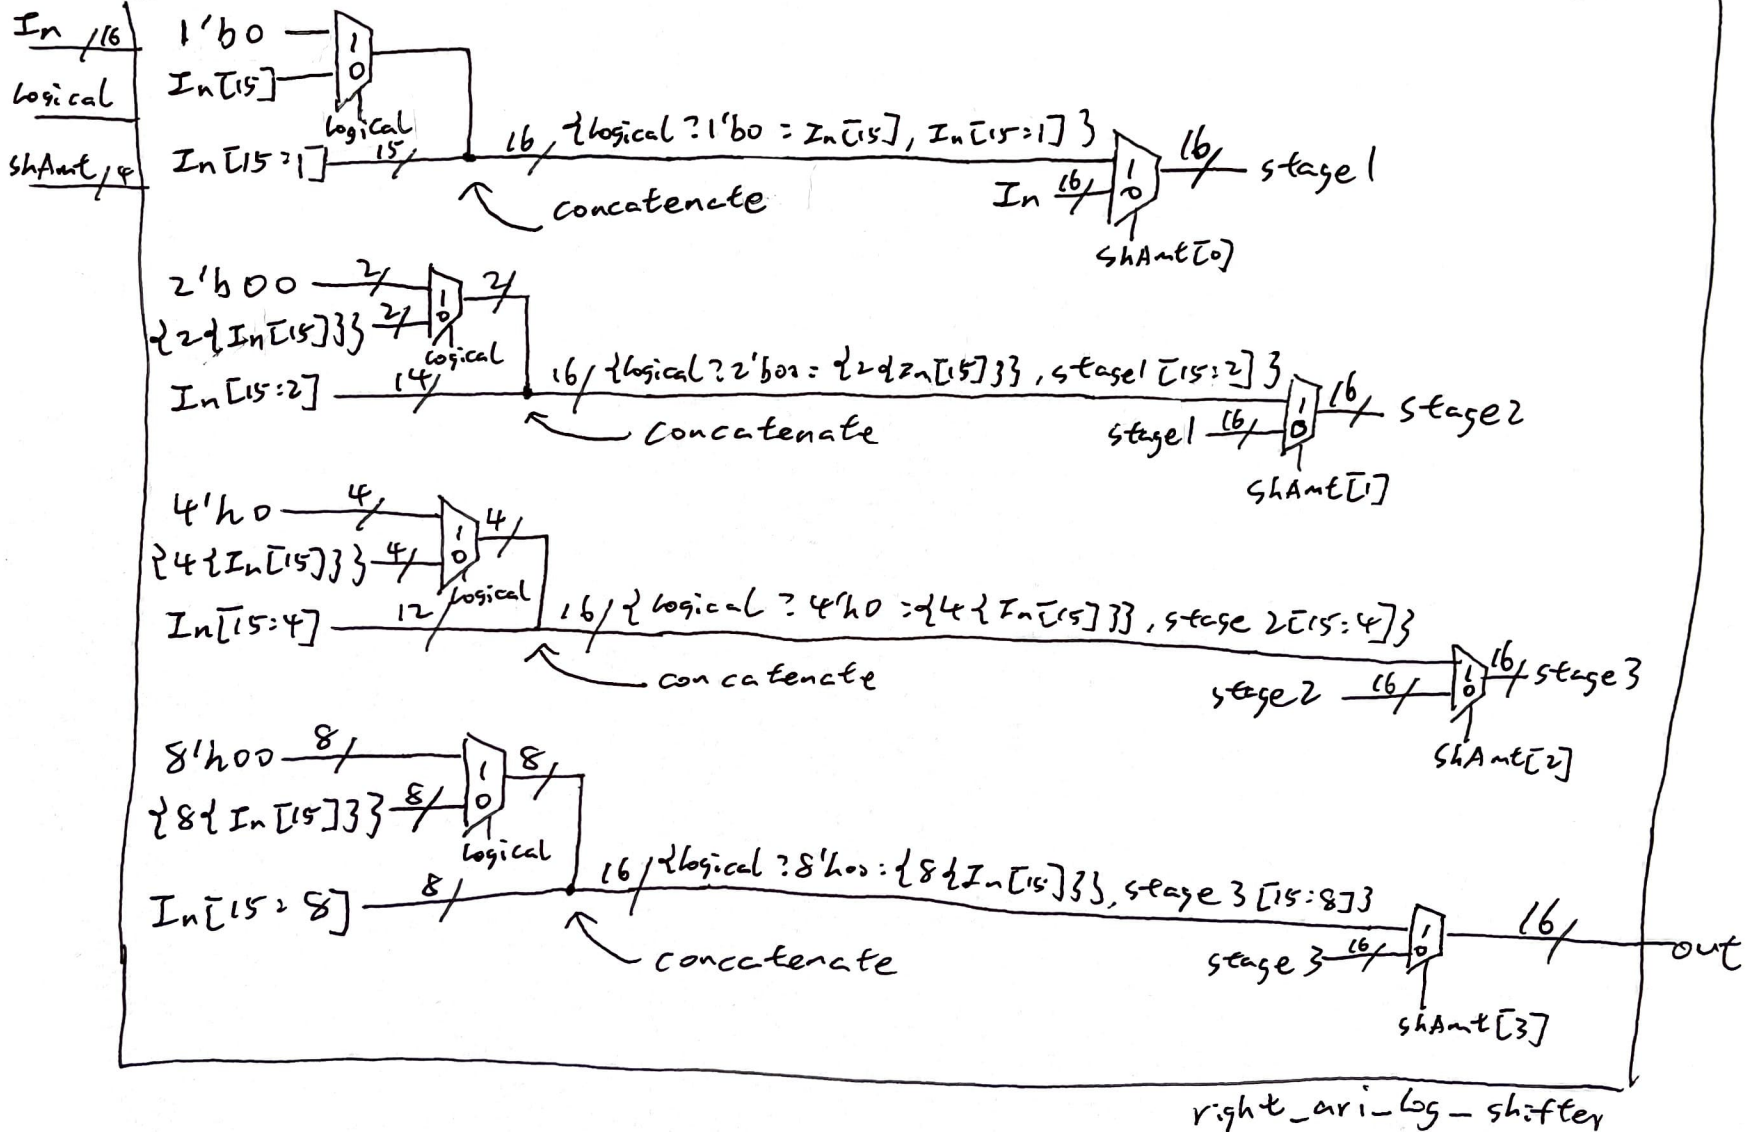 In /16
logical
shAmt /4
1'b0
1
In[15]
0
logical
In[15:1] 15
16 {logical ? 1'b0 : In[15], In[15:1]}
concatenate
In 16
1
0
16 stage1
shAmt[0]
2'b00 2
1
2
{2{In[15]}} 2
0
logical
In[15:2] 14
16 {logical ? 2'b00 : {2{In[15]}}, stage1[15:2]}
concatenate
stage1 16
1
0
16 stage2
shAmt[1]
4'h0 4
1
4
{4{In[15]}} 4
0
logical
In[15:4] 12
16 {logical ? 4'h0 : {4{In[15]}}, stage2[15:4]}
concatenate
stage2 16
1
0
16 stage3
shAmt[2]
8'h00 8
1
8
{8{In[15]}} 8
0
logical
In[15:8] 8
16 {logical ? 8'h00 : {8{In[15]}}, stage3[15:8]}
concatenate
stage3 16
1
0
16 out
shAmt[3]
right_ari_log_shifter